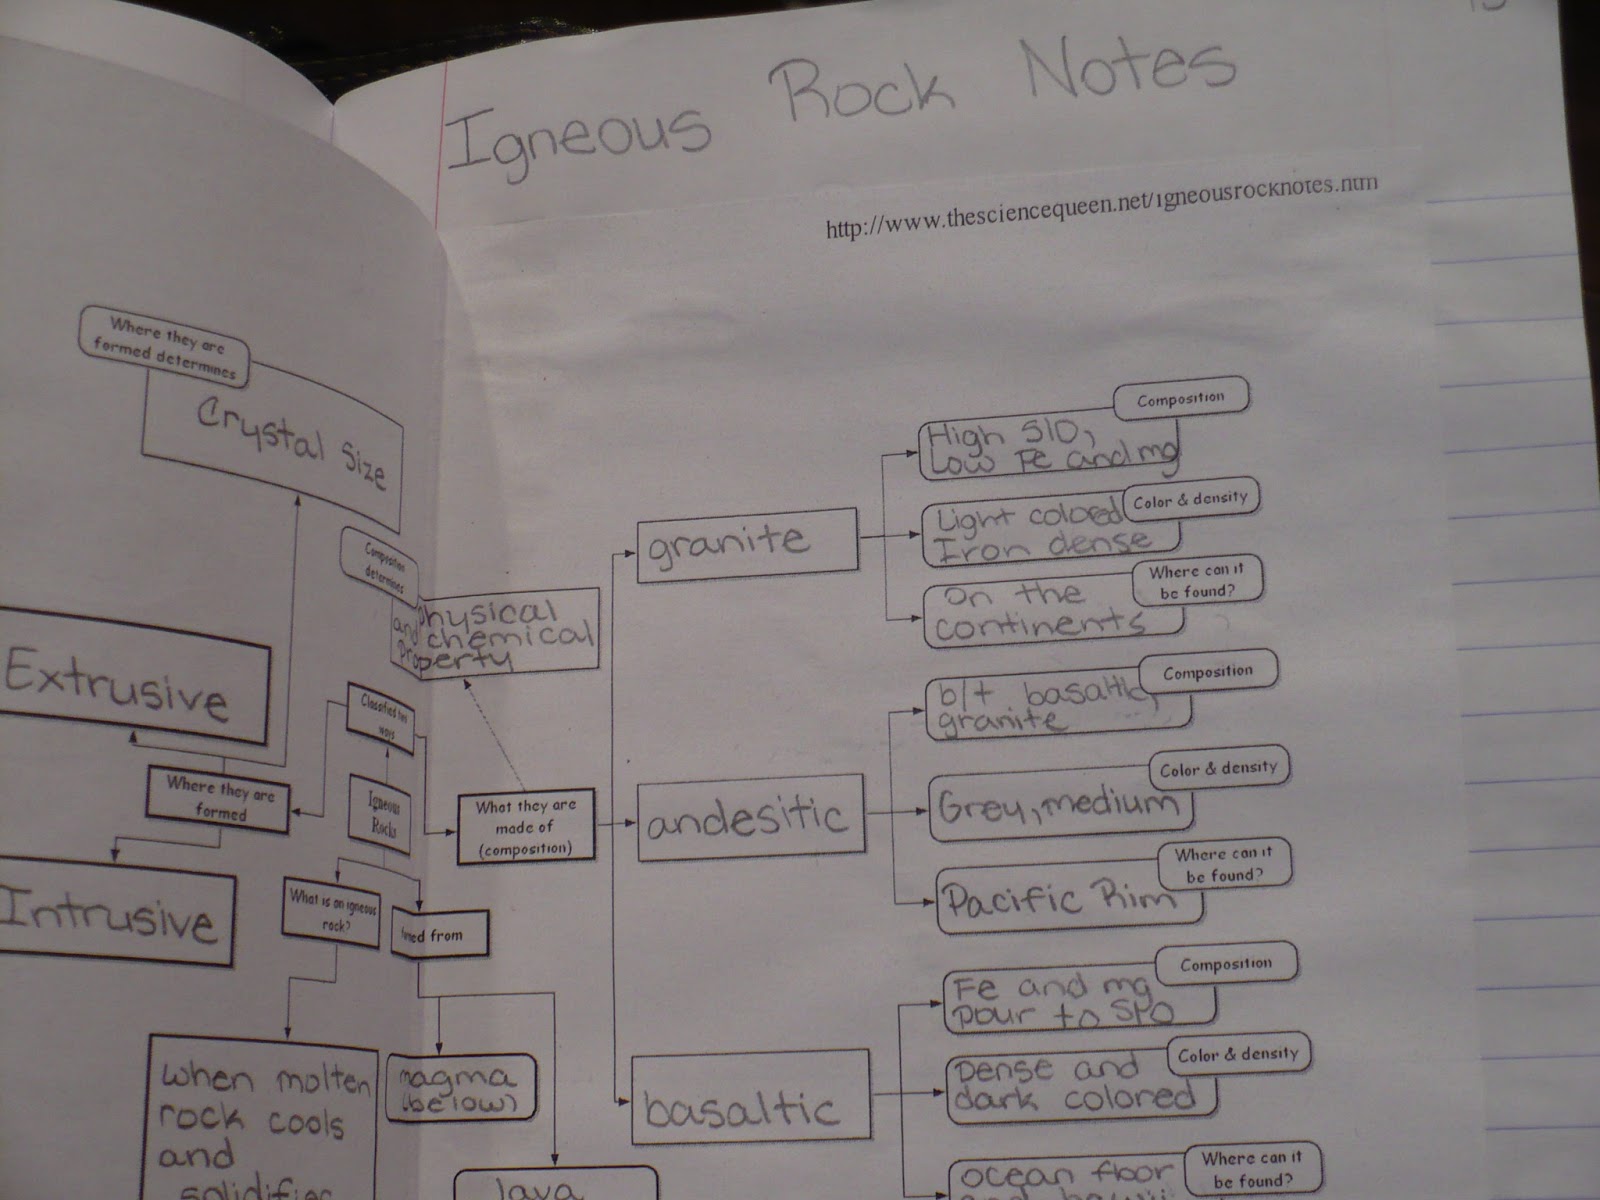 Igneous Rock Notes
http://www.thesciencequeen.net/igneousrocknotes.htm
Where they are
formed determines
Crystal Size
Composition
determines
physical
and chemical
property
Extrusive
Classified two
ways
Where they are
formed
Igneous
Rocks
What they are
made of
(composition)
Intrusive
What is an igneous
rock?
from
when molten
rock cools
and
magma
(below)
lava
granite
Composition
High SIO,
Low Fe and mg
Color & density
Light colored
Iron dense
Where can it
be found?
on the
continents
andesitic
Composition
b/t basaltic,
granite
Color & density
Grey, medium
Where can it
be found?
Pacific Rim
basaltic
Composition
Fe and mg
pour to SIO
Color & density
Dense and
dark colored
Where can it
be found?
ocean floor